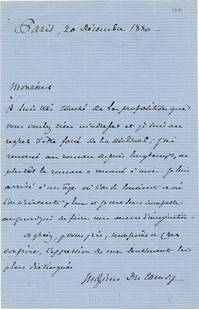 Paris, 20 Décembre 1880
Monsieur
je suis très touché de la proposition que
vous voulez bien m'adresser et je suis au
regret d'être forcé de la décliner; j'ai
renoncé au roman depuis longtemps, ou
plutôt le roman a renoncé à moi. Je suis
arrivé à un âge où l'on
plus et je me sens incapable
aujourd'hui de faire une œuvre d'imagination.
Agréez, je vous prie, monsieur & cher
confrère, l'expression de mes sentiments les
plus distingués
Maxime Du Camp